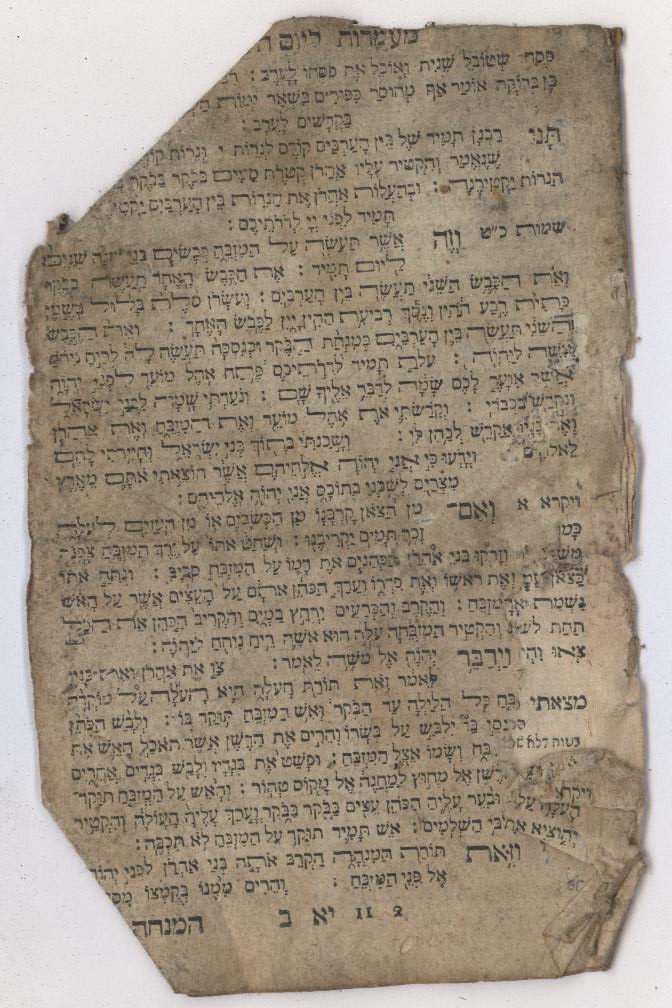 מעמדות ליום
פסח שטובל שנית ואוכל את פסחו לָעֶרֶב :
בֶּן בְּרוֹקָה אוֹמֵר אַף מְחוּסַר כִּפּוּרִים בִּשְׁאָר יְמוֹת
בְּקָדָשִׁים לָעֶרֶב :
תָּנוּ רַבָּנָן תָּמִיד שֶׁל בֵּין הָעַרְבַּיִם קוֹדֵם לַנֵרוֹת וְנֵרוֹת
שֶׁנֶּאֱמַר וְהִקְטִיר עָלָיו אַהֲרֹן קְטֹרֶת סַמִּים בַּבֹּקֶר בַּבֹּקֶר
הַנֵּרוֹת יַקְטִירֶנָּה : וּבְהַעֲלוֹת אַהֲרֹן אֶת הַנֵּרוֹת בֵּין הָעַרְבַּיִם
תָּמִיד לִפְנֵי יְיָ לְדֹרֹתֵיכֶם :
שמות כ״ט וְזֶה אֲשֶׁר תַּעֲשֶׂה עַל הַמִּזְבֵּחַ כְּבָשִׂים בְּנֵי שנה שְׁנַיִם
לַיּוֹם תָּמִיד : אֶת הַכֶּבֶשׂ הָאֶחָד תַּעֲשֶׂה בַבֹּקֶר
וְאֵת הַכֶּבֶשׂ הַשֵּׁנִי תַּעֲשֶׂה בֵּין הָעַרְבָּיִם : וְעִשָּׂרֹן סֹלֶת בָּלוּל בְּשֶׁמֶן
כָּתִית רֶבַע הַהִין וְנֵסֶךְ רְבִיעִת הַהִין יָיִן לַכֶּבֶשׂ הָאֶחָד : וְאֵת הַכֶּבֶשׂ
הַשֵּׁנִי תַּעֲשֶׂה בֵּין הָעַרְבַּיִם כְּמִנְחַת הַבֹּקֶר וּכְנִסְכָּהּ תַּעֲשֶׂה לָּהּ לְרֵיחַ נִיחֹחַ
אִשֶּׁה לַיהוָה : עֹלַת תָּמִיד לְדֹרֹתֵיכֶם פֶּתַח אֹהֶל מוֹעֵד לִפְנֵי יְהוָה
אֲשֶׁר אִוָּעֵד לָכֶם שָׁמָּה לְדַבֵּר אֵלֶיךָ שָׁם : וְנֹעַדְתִּי שָׁמָּה לִבְנֵי יִשְׂרָאֵל
וְנִקְדַּשׁ בִּכְבֹדִי : וְקִדַּשְׁתִּי אֶת אֹהֶל מוֹעֵד וְאֶת הַמִּזְבֵּחַ וְאֶת אַהֲרֹן
וְאֶת בָּנָיו אֲקַדֵּשׁ לְכַהֵן לִי : וְשָׁכַנְתִּי בְּתוֹךְ בְּנֵי יִשְׂרָאֵל וְהָיִיתִי לָהֶם
לֵאלֹהִים וְיָדְעוּ כִּי אֲנִי יְהוָה אֱלֹהֵיהֶם אֲשֶׁר הוֹצֵאתִי אֹתָם מֵאֶרֶץ
מִצְרַיִם לְשָׁכְנִי בְתוֹכָם אֲנִי יְהוָה אֱלֹהֵיהֶם :
ויקרא א וְאִם־ מִן הַצֹּאן קָרְבָּנוֹ מִן הַכְּשָׂבִים אוֹ מִן הָעִזִּים לְעֹלָה
זָכָר תָּמִים יַקְרִיבֶנּוּ : וְשָׁחַט אֹתוֹ עַל יֶרֶךְ הַמִּזְבֵּחַ צָפֹנָה
וְזָרְקוּ בְּנֵי אַהֲרֹן הַכֹּהֲנִים אֶת דָּמוֹ עַל הַמִּזְבֵּחַ סָבִיב : וְנִתַּח אֹתוֹ
וְאֶת רֹאשׁוֹ וְאֶת פִּדְרוֹ וְעָרַךְ הַכֹּהֵן אֹתָם עַל הָעֵצִים אֲשֶׁר עַל הָאֵשׁ
וְהַקֶּרֶב וְהַכְּרָעַיִם יִרְחַץ בַּמָּיִם וְהִקְרִיב הַכֹּהֵן אֶת הַכֹּל
וְהִקְטִיר הַמִּזְבֵּחָה עֹלָה הוּא אִשֵּׁה רֵיחַ נִיחֹחַ לַיהוָה :
וַיְדַבֵּר יְהוָה אֶל מֹשֶׁה לֵּאמֹר : צַו אֶת אַהֲרֹן וְאֶת בָּנָיו
לֵאמֹר זֹאת תּוֹרַת הָעֹלָה הִיא הָעֹלָה עַל מוֹקְדָה
מצאתי כָּל הַלַּיְלָה עַד הַבֹּקֶר וְאֵשׁ הַמִּזְבֵּחַ תּוּקַד בּוֹ : וְלָבַשׁ הַכֹּהֵן
יִלְבַּשׁ עַל בְּשָׂרוֹ וְהֵרִים אֶת הַדֶּשֶׁן אֲשֶׁר תֹּאכַל הָאֵשׁ אֶת
וְשָׂמוֹ אֵצֶל הַמִּזְבֵּחַ : וּפָשַׁט אֶת בְּגָדָיו וְלָבַשׁ בְּגָדִים אֲחֵרִים
אֶל מִחוּץ לַמַּחֲנֶה אֶל מָקוֹם טָהוֹר : וְהָאֵשׁ עַל הַמִּזְבֵּחַ תּוּקַד
וּבִעֵר עָלֶיהָ הַכֹּהֵן עֵצִים בַּבֹּקֶר בַּבֹּקֶר וְעָרַךְ עָלֶיהָ הָעוֹלָה וְהִקְטִיר
הַשְּׁלָמִים : אֵשׁ תָּמִיד תּוּקַד עַל הַמִּזְבֵּחַ לֹא תִכְבֶּה :
וְזֹאת תּוֹרַת הַמִּנְחָה הַקְרֵב אֹתָהּ בְּנֵי אַהֲרֹן לִפְנֵי יְהוָה
אֶל פְּנֵי הַמִּזְבֵּחַ : וְהֵרִים מִמֶּנּוּ בְּקֻמְצוֹ
2 11 יא ב המנחה